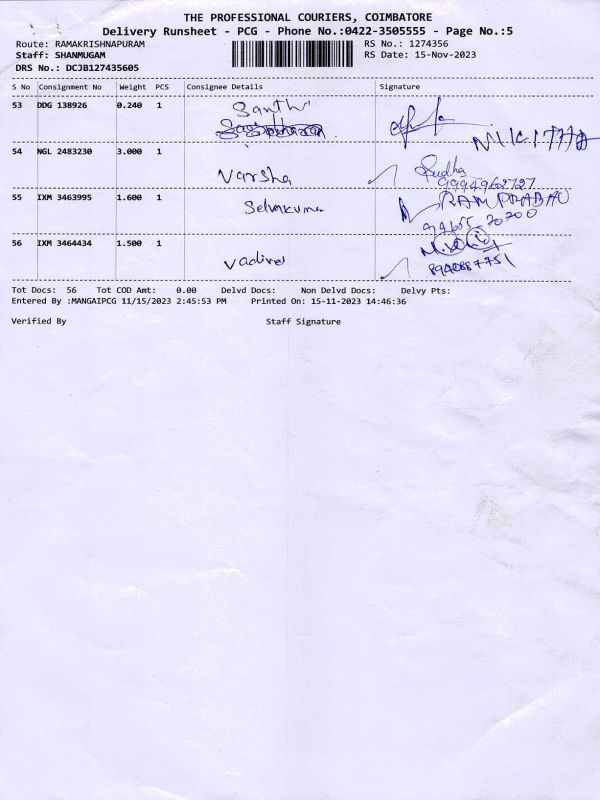 THE PROFESSIONAL COURIERS, COIMBATORE
Delivery Runsheet - PCG - Phone No.:0422-3505555 - Page No.:5
Route: RAMAKRISHNAPURAM RS No.: 1274356
Staff: SHANMUGAM RS Date: 15-Nov-2023
DRS No.: DCJB127435605
S No Consignment No Weight PCS Consignee Details Signature
53 DDG 138926 0.240 1 Santhi
54 NGL 2483230 3.000 1 Varsha Sudha
9994962727
55 IXM 3463995 1.600 1 Selvakumar RAM PRABHU
56 IXM 3464434 1.500 1 Vadivel
8940887751
Tot Docs: 56 Tot COD Amt: 0.00 Delvd Docs: Non Delvd Docs: Delvy Pts:
Entered By :MANGAIPCG 11/15/2023 2:45:53 PM Printed On: 15-11-2023 14:46:36
Verified By Staff Signature